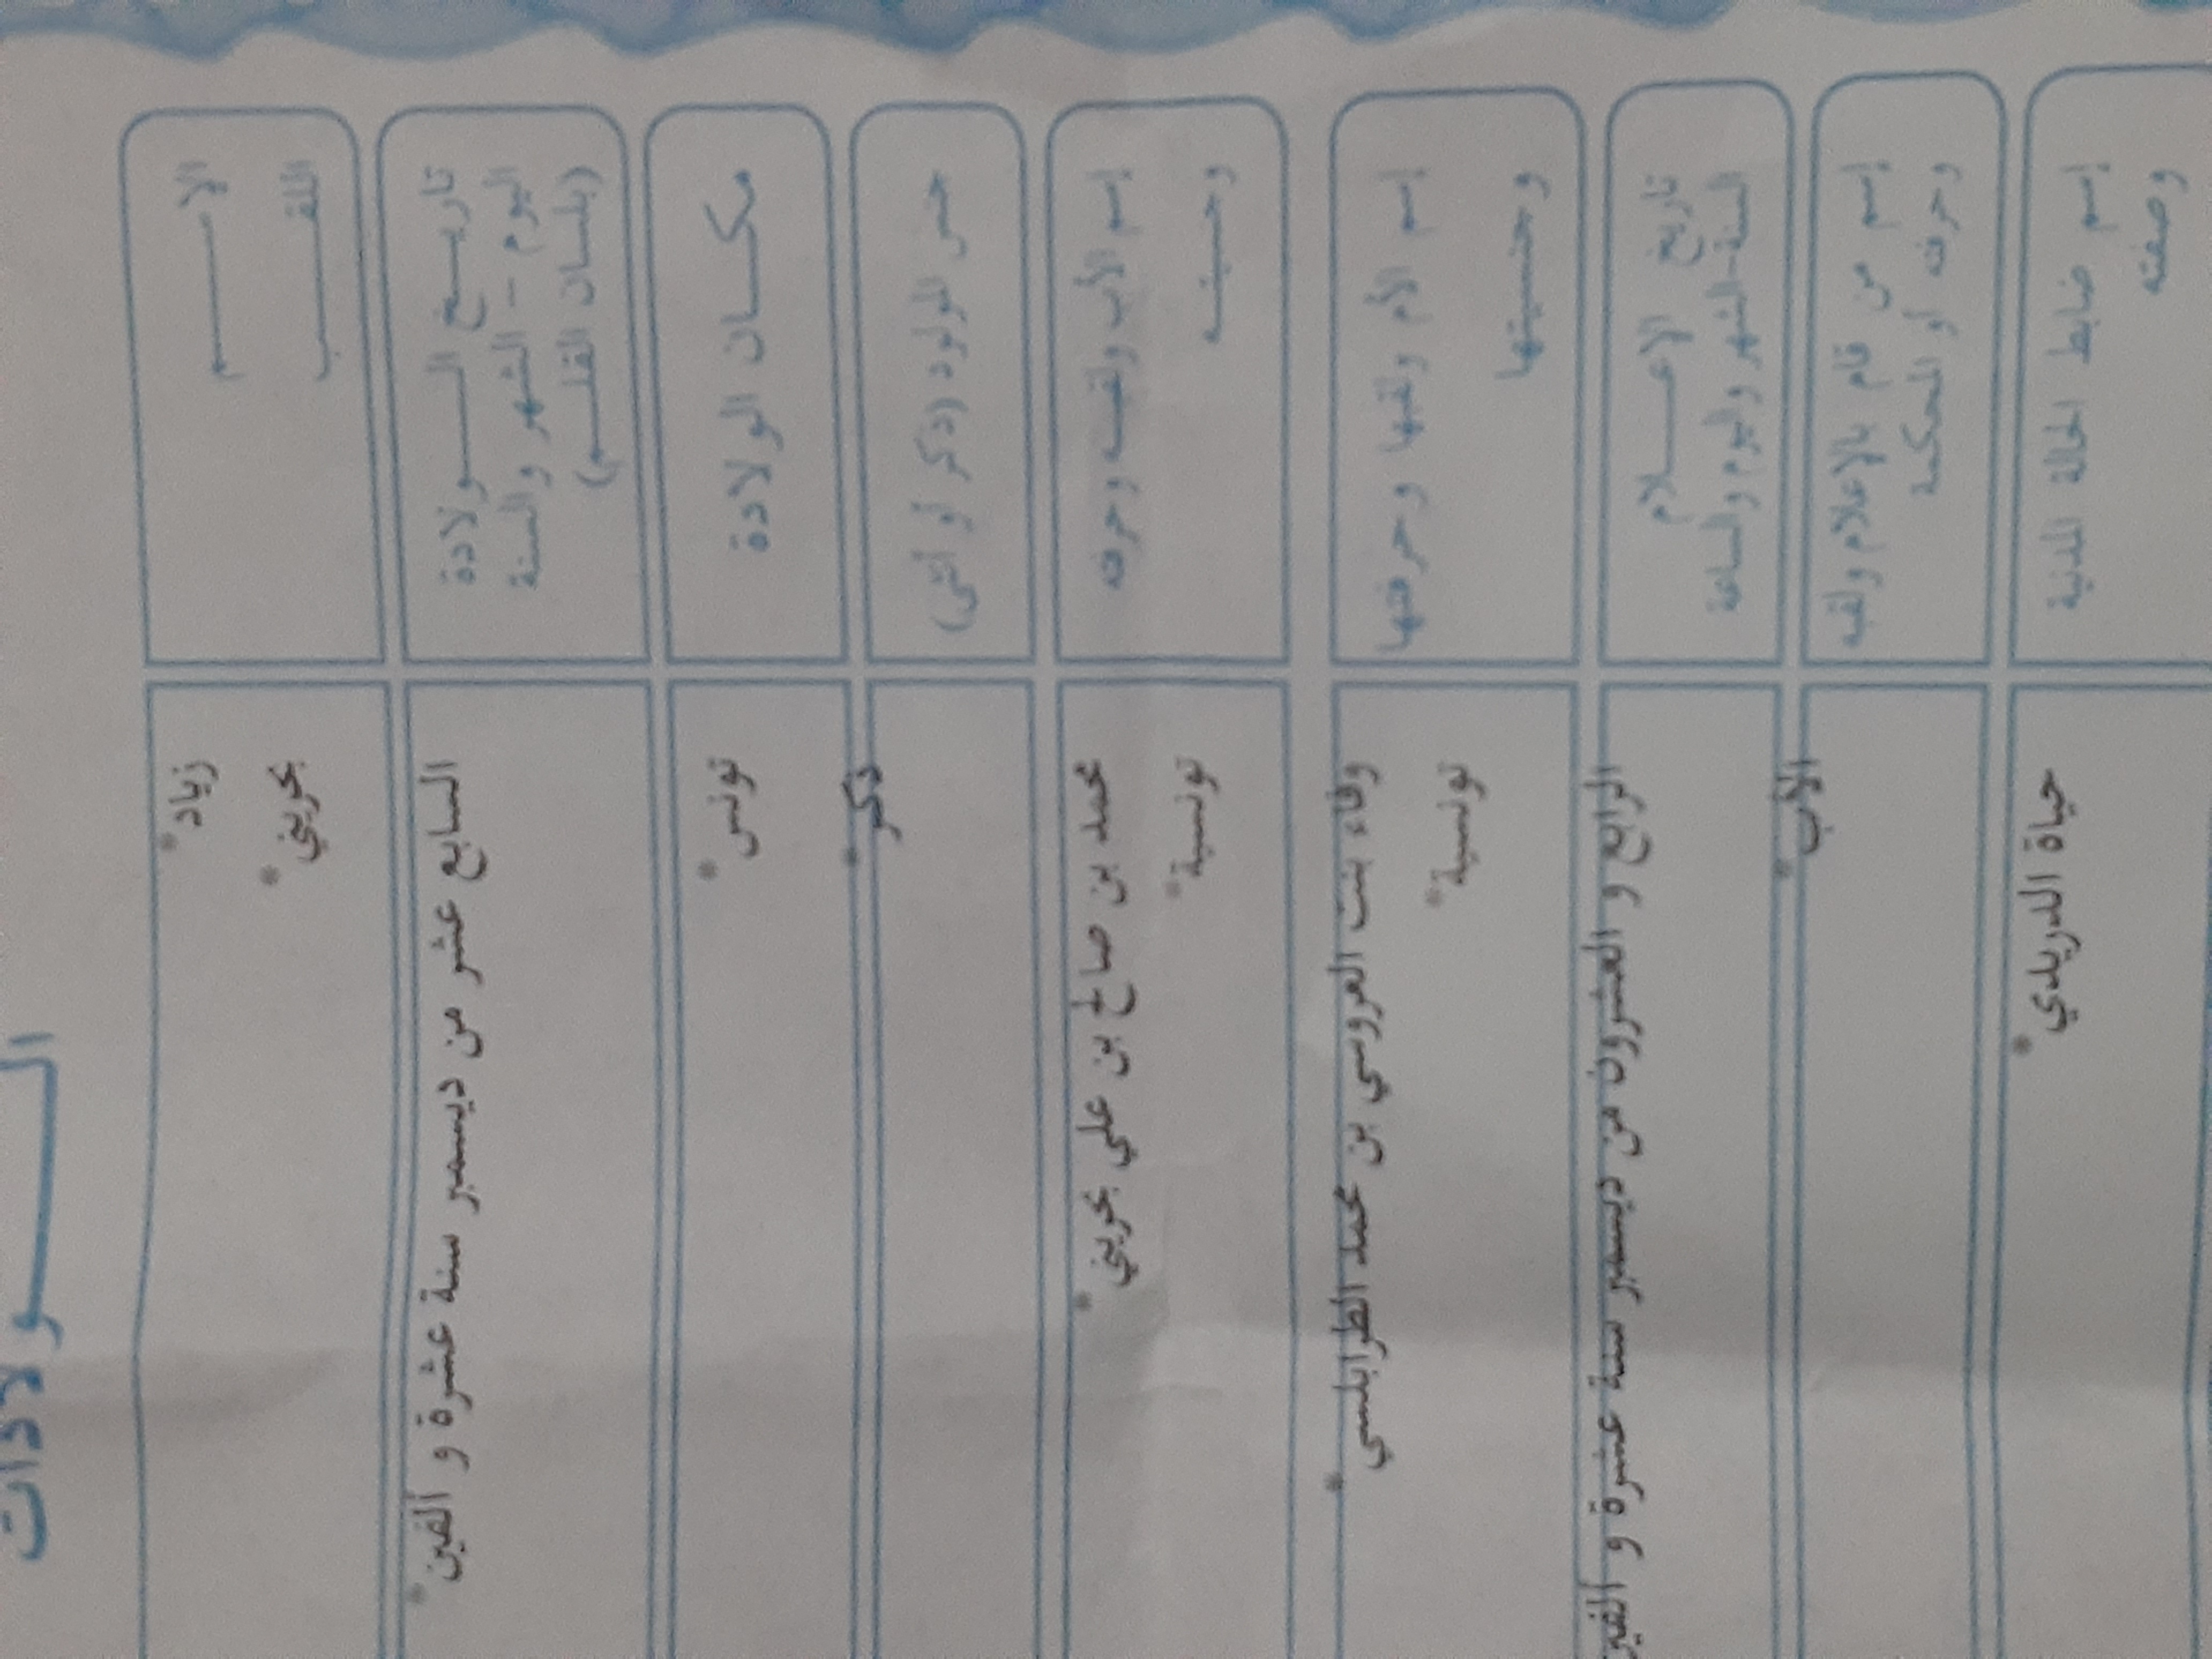 الـــــولادات
الإســـــم
زياد*
اللقـــــب
بحريني*
تاريـــخ الـــــولادة
اليوم - الشهر والسنة
(بلسان القلـــم)
السابع عشر من ديسمبر سنة عشرة و ألفين*
مكـــان الولادة
تونس*
جنس المولود (ذكر أو أنثى)
ذكر*
إسم الأب ولقبـــه وحرفته
محمد بن صالح بن علي بحريني*
وجنسيتـــه
تونسية*
إسم الأم ولقبها وحرفتها
وفاء بنت العروسي بن محمد الطرابلسي*
وجنسيتها
تونسية*
تاريخ الإعـــلام
السنة-الشهر واليوم والساعة
الرابع و العشرون من ديسمبر سنة عشرة و ألفين
إسم من قام بالإعلام ولقبه
وحرفته أو المحكمة
الأب*
إسم ضابط الحالة المدنية
وصفته
حياة الدريدي*